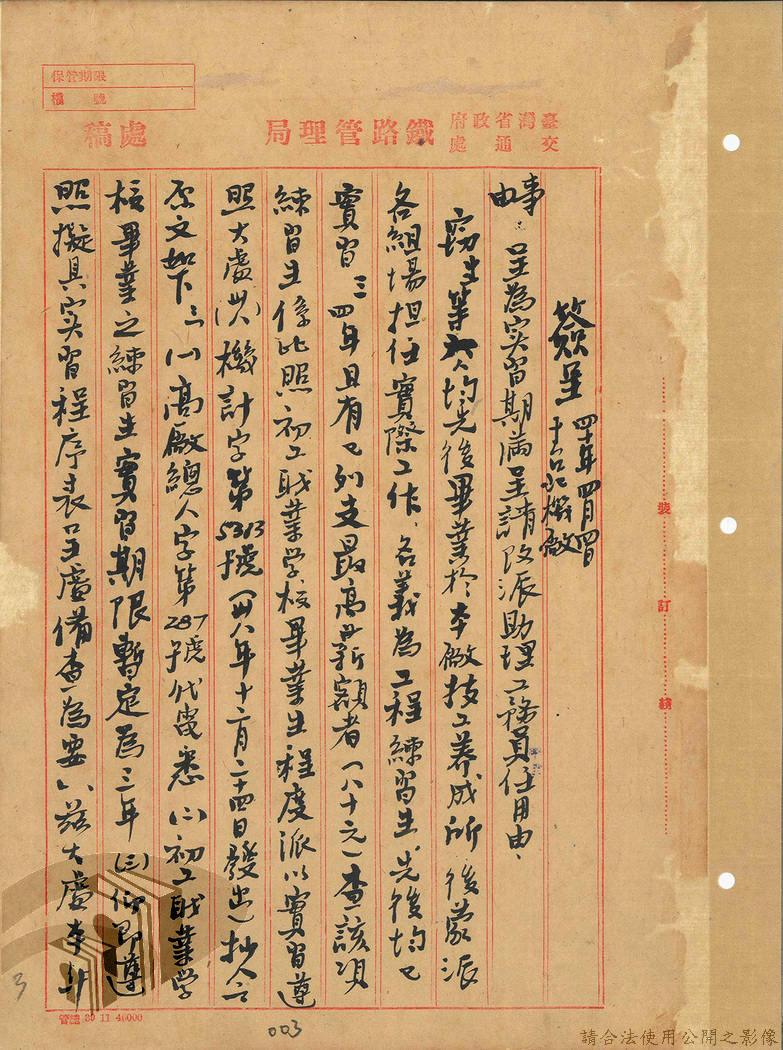 保管期限
檔 號
臺灣省政府交通處鐵路管理局 處稿
簽呈 四十年四月 日
于台北機廠
事由：呈為实習期滿呈請改派助理工務員任用由、
竊生等 人均先後畢業於本廠技工养成所後蒙派
各組場担任實際工作、名義為工程練習生先後均已
實習三四年且有已列支最高薪額者（八十元）查該項
練習生係比照初工職業学校畢業生程度派以實習遵
照大處 機計字第5313號（卅八年十二月二十四日發出）抄令
原文如下：「(一)高廠總人字第287號代電悉(二)初工職業学
校畢業之練習生實習期限暫定為三年(三)仰即遵
照擬具实習程序表呈處備查為要」茲大處本
裝
訂
線
管總 39 11 40000
003
3
請合法使用公開之影像